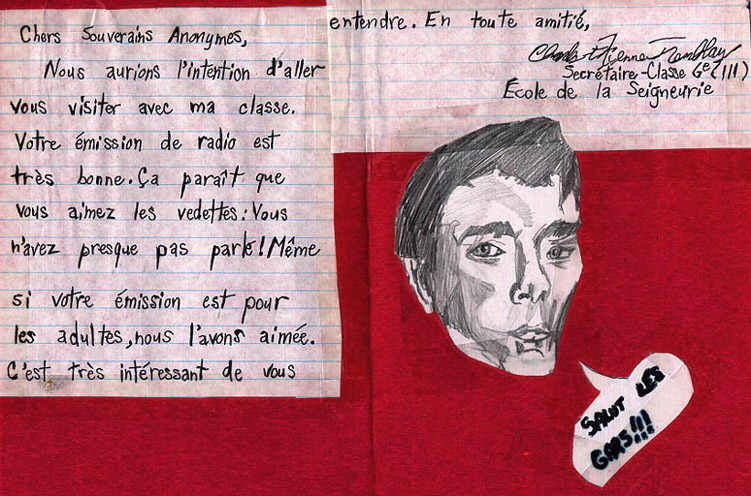 Chers Souverains Anonymes,
Nous aurions l'intention d'aller
vous visiter avec ma classe.
Votre émission de radio est
très bonne. Ça paraît que
vous aimez les vedettes: Vous
n'avez presque pas parlé! Même
si votre émission est pour
les adultes, nous l'avons aimée.
C'est très intéressant de vous
entendre. En toute amitié,
Tremblay
Secrétaire-Classe 6e (111)
École de la Seigneurie
SALUT LES
GARS!!!